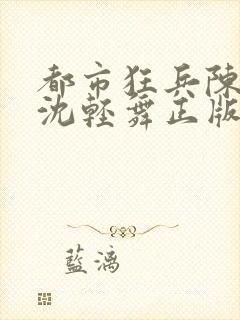 都市狂兵陳
沈輕舞正版
藍漓